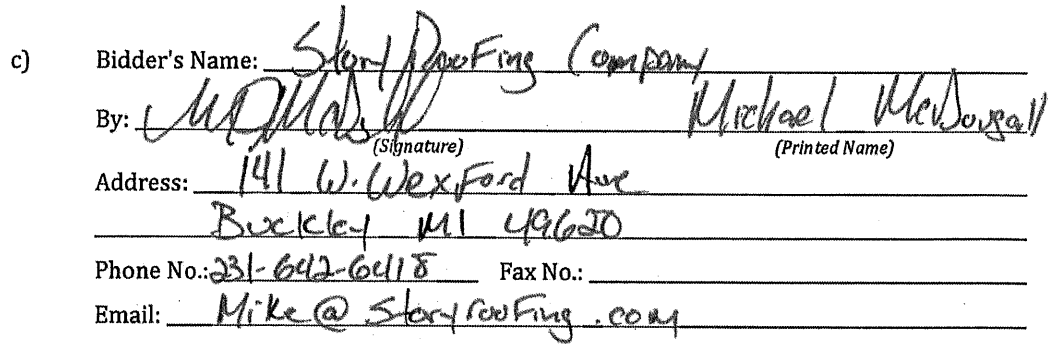 c) Bidder's Name: Story Roofing Company
By: Michael McDougall
(Signature) (Printed Name)
Address: 141 W. Wexford Ave
Buckley MI 49620
Phone No.: 231-642-6418 Fax No.:
Email: Mike@storyroofing.com